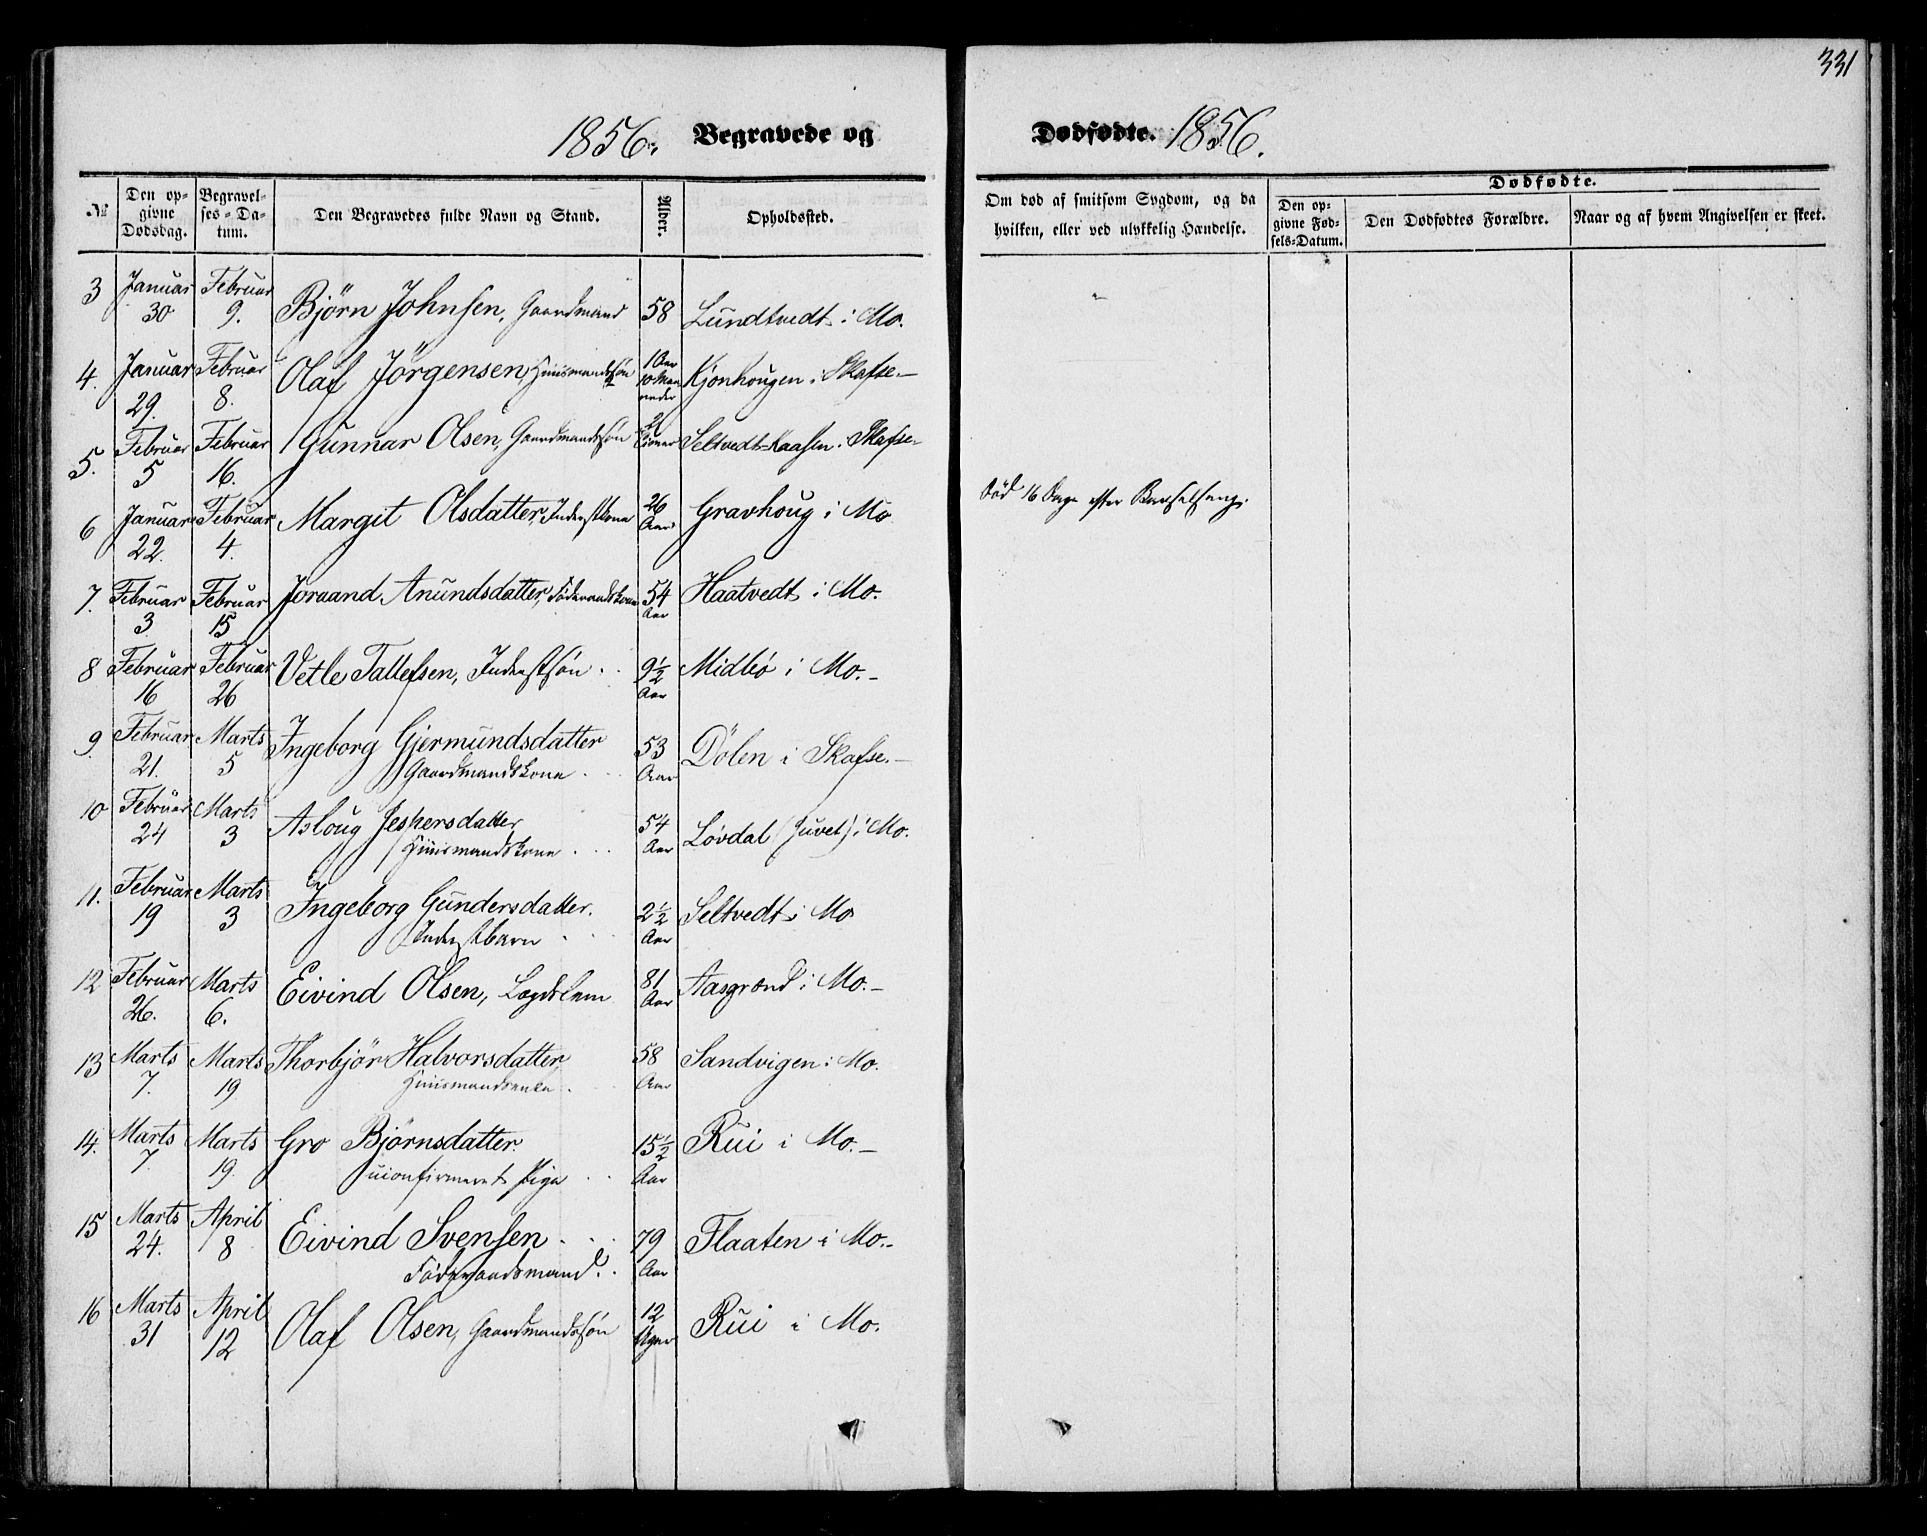 331
1856. Begravede og Dødfødte. 1856.
№ Den opgivne Dødsdag. Begravelses-Datum. Den Begravedes fulde Navn og Stand. Alder. Opholdssted.
Om død af smitsom Sygdom, og da hvilken, eller ved ulykkelig Hændelse.
Dødfødte.
Den opgivne Fødsels-Datum. Den Dødfødtes Forældre. Naar og af hvem Angivelsen er skeet.
3 Januar 30 Februar 9. Björn Johnsen, Gaardmand 58 Lundtvedt i Mo.
4. Januar 29. Februar 8. Olaf Jörgensen Huusmandssön 1 Aar 10 Maaneder Kjonhougen i Skafse.
5. Februar 5 Februar 16. Gunnar Olsen, Gaardmandssön 2 Seltvedt-Kaasen i Skafse
6 Januar 22. Februar 4. Margit Olsdatter, Inderstkone 26 Aar Gravhoug i Mo död 16 Dage efter Barselseng.
7. Februar 3 Februar 15 Joraand Anundsdatter, Föderaadskone 54 Aar Haatvedt i Mo.
8 Februar 16 Februar 26 Vetle Tallefsen, Inderstsön 9½ Aar Midbö i Mo.
9. Februar 21. Marts 5 Ingeborg Gjermundsdatter
Gaardmandskone 53 Aar Dölen i Skafse.
10 Februar 24 Marts 3 Asloug Jespersdatter
Huusmandskone 54 Aar Lövdal (Juvet) i Mo.
11. Februar 19 Marts 3 Ingeborg Gundersdatter.
Inderstbarn 2½ Aar Seltvedt i Mo
12 Februar 26. Marts 6. Eivind Olsen, Lægdslem 81 Aar Aasgrænd i Mo.
13 Marts 7. Marts 19 Thorbjör Halvorsdatter
Huusmandsenke 58 Aar Sandvigen i Mo.
14. Marts 7. Marts 19. Gro Björnsdatter.
uconfirmeret Pige 15½ Aar Rui i Mo.
15 Marts 24. April 8 Eivind Svensen
Föderaadsmand. 79 Aar Flaaten i Mo.
16 Marts 31 April 12 Olaf Olsen, Gaardmandssön 12 Uger Rui i Mo.